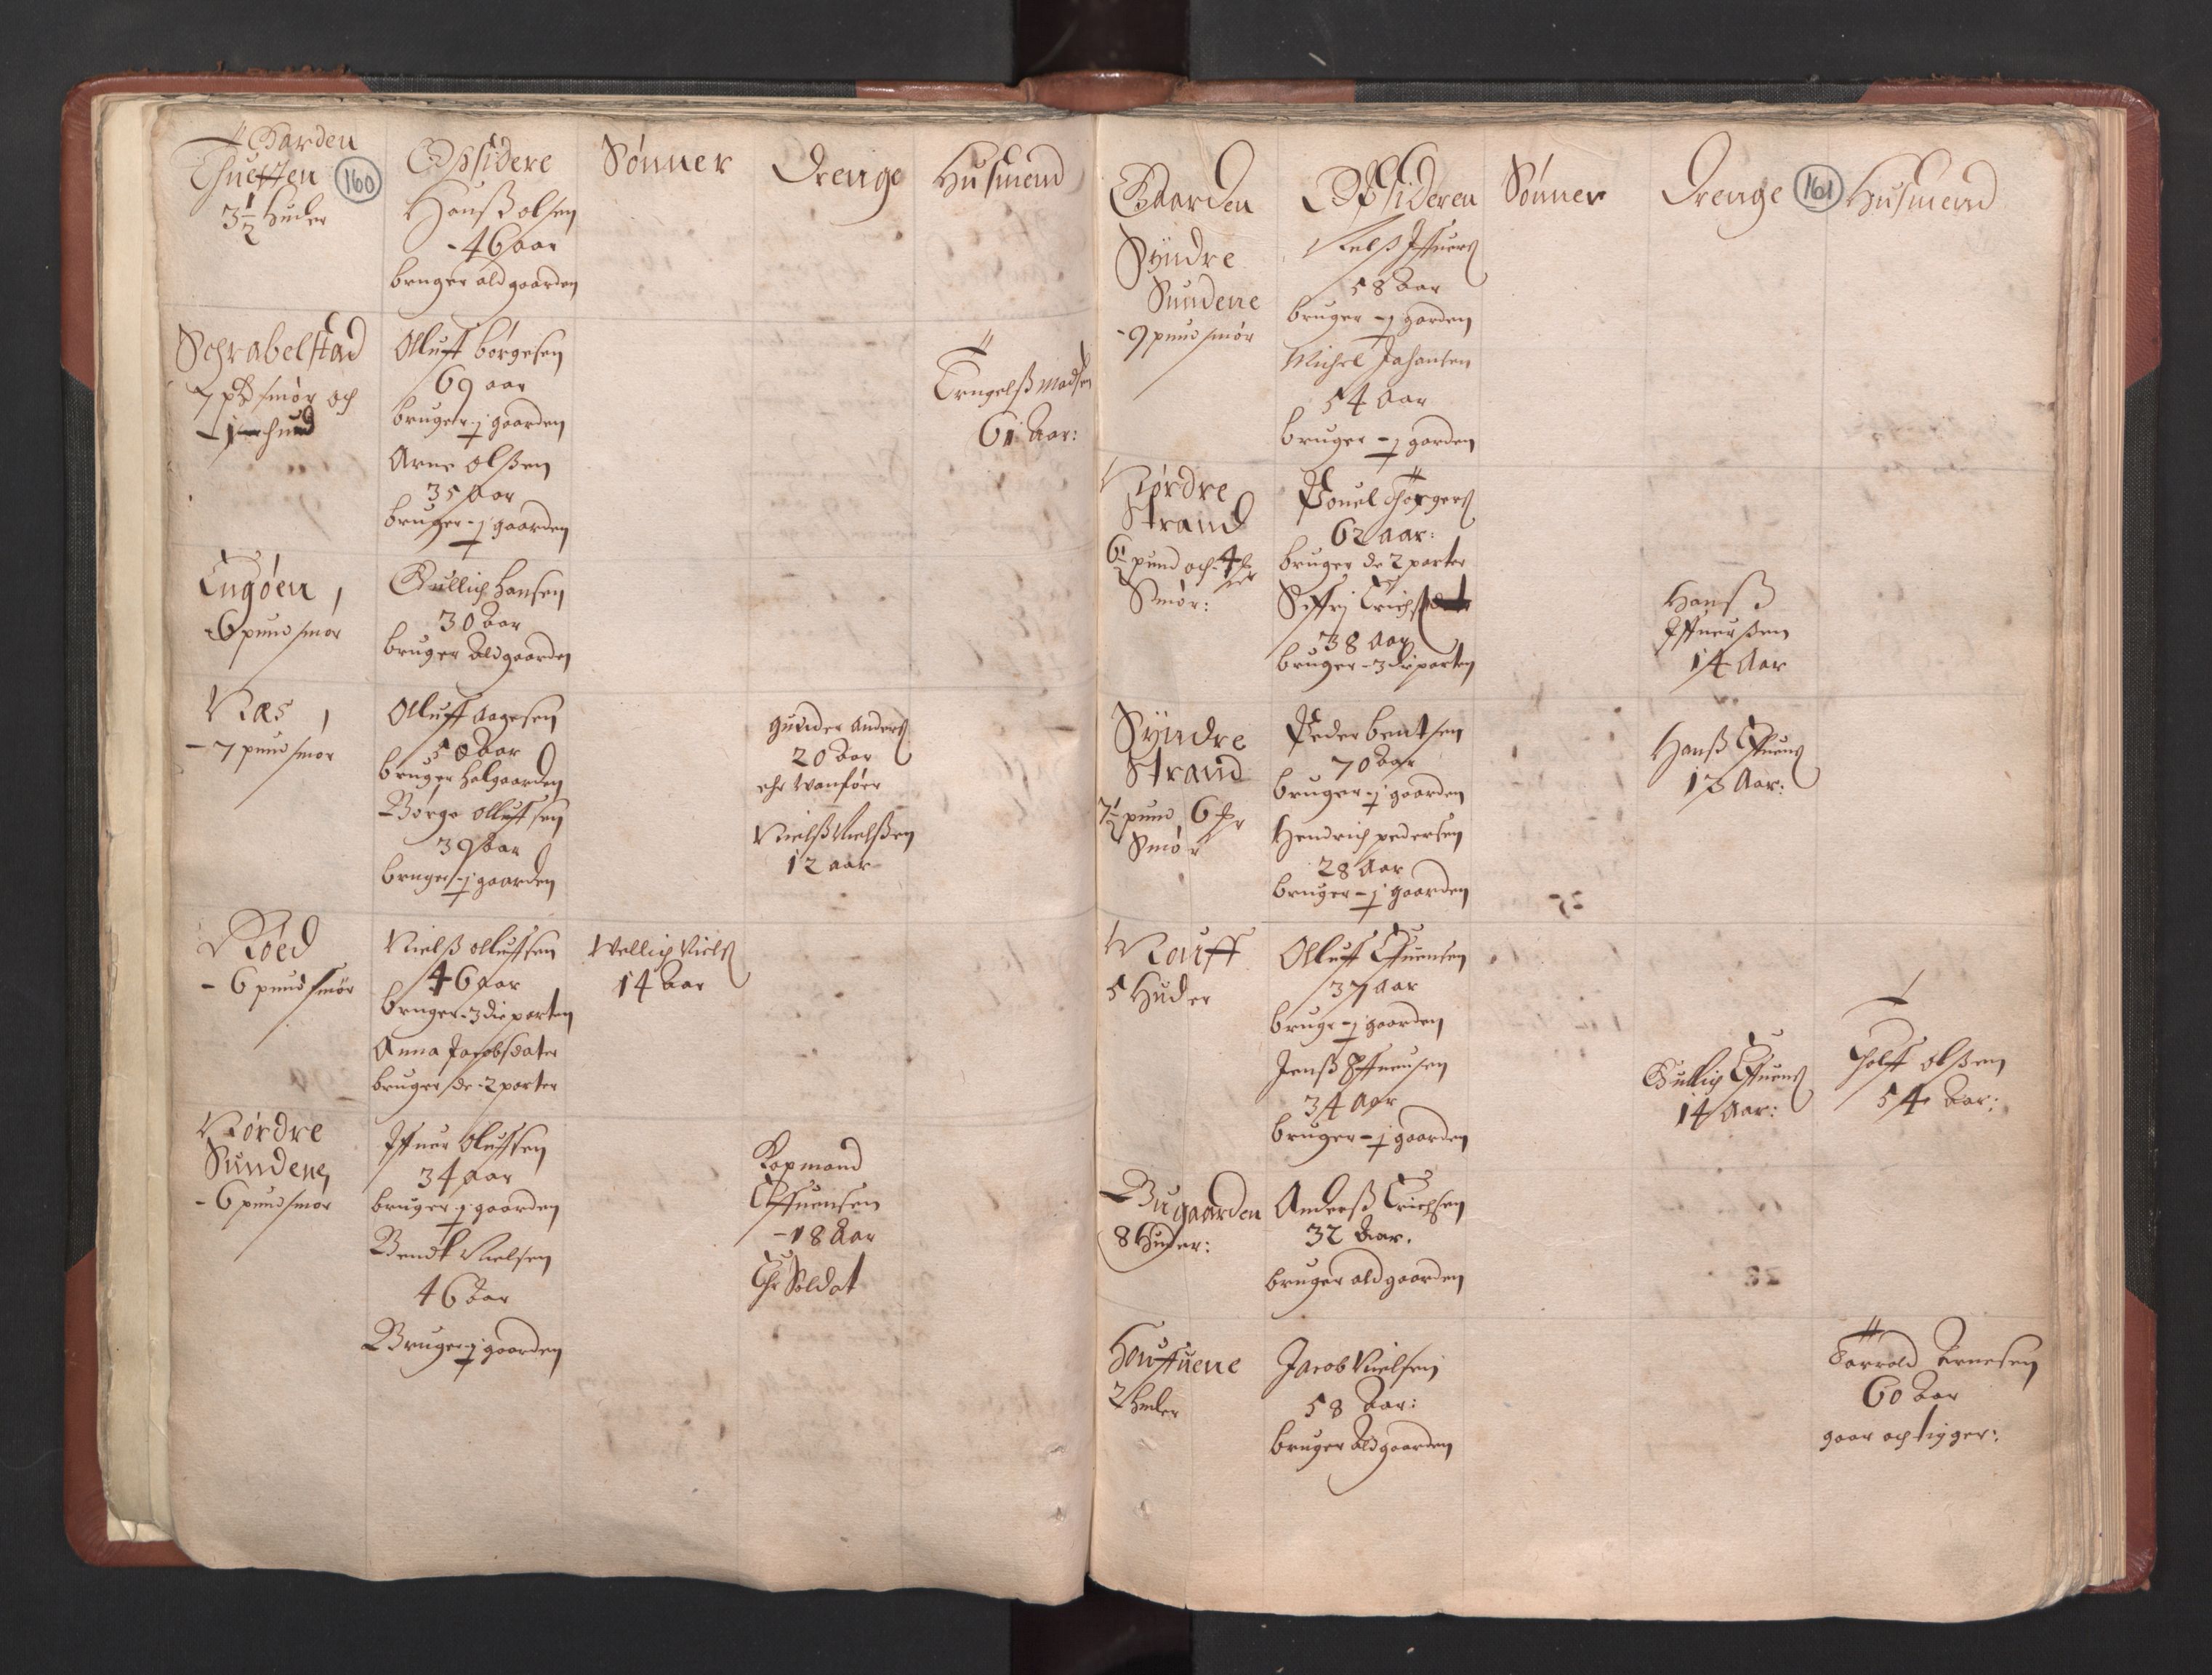 Gaarden Opsidere Sønner Drenge Husmend
160
3½ Huder
Hanß olsen
- 46 aar
bruger ald gaarden
Schrabelstad
7 pd smør och
- 1 - hud
Olluff børgesen
69 aar
bruger - j gaarden
Arne olßen
35 Aar
bruger - j gaarden
Trugelß Madsen
61 Aar:
Engøen
6 pund smør
Gullich hansen
30 Aar
bruger Aldgaarden
Næs
- 7 pund smør
Olluff Aagesen
50 Aar
bruger halgaarden
Børge olluffsen
39 Aar
bruger - j gaarden
Gunder Anders
20 Aar
ehr Wanføer
Nielß Nielßen
12 aar
Røed
- 6 pund smør
Nielß olluffsen
46 Aar
bruger - 3die parten
Anna Jacobsdater
bruger de - 2 parter
Wellich Niels
14 Aar
Nørdre
Sundene
- 6 pund smør
Iffuer Oluffsen
34 Aar
bruger j gaarden
Bendt Nielsen
46 Aar
Bruger - j gaarden
Kopmand
Effuensen
- 18 Aar
Ehr Soldat
Gaarden Opsideren Sønner Drenge 161 Husmend
Syndre
Sundene
- 9 pund smør
Nelß Iffuers
58 Aar
bruger - j garden
Michel Johansen
54 Aar
bruger - j garden
Nørdre
Strand
6½ pund och 4
Smør:
Pouel
62 Aar:
bruger de 2 parter
Siffri Erichs
38 Aar
bruger - 3die parten
Hanß
Iffuerßen
14 Aar
Syndre
Strand
7½ pund 6
Smør
Peder bentsen
70 Aar
bruger - j gaarden
Hendrich pedersen
28 Aar
bruger - j gaarden
Hanß Effuens
13 Aar:
Nouff
5 Huder
Olluff Effuensen
37 Aar
bruger - j gaarden
Jenß Effuensen
34 Aar
bruger - j gaarden
Gullich Effuens
14 Aar:
Tholff olßen
54 Aar:
Bugaarden
8 Huder:
Anderß Erichsen
32 Aar.
bruger ald gaarden
Houffuene
2 huder
Jacob Nielsen
58 Aar:
bruger Aldgaarden
Tarrald Arnesen
60 Aar
gaar och tigger: